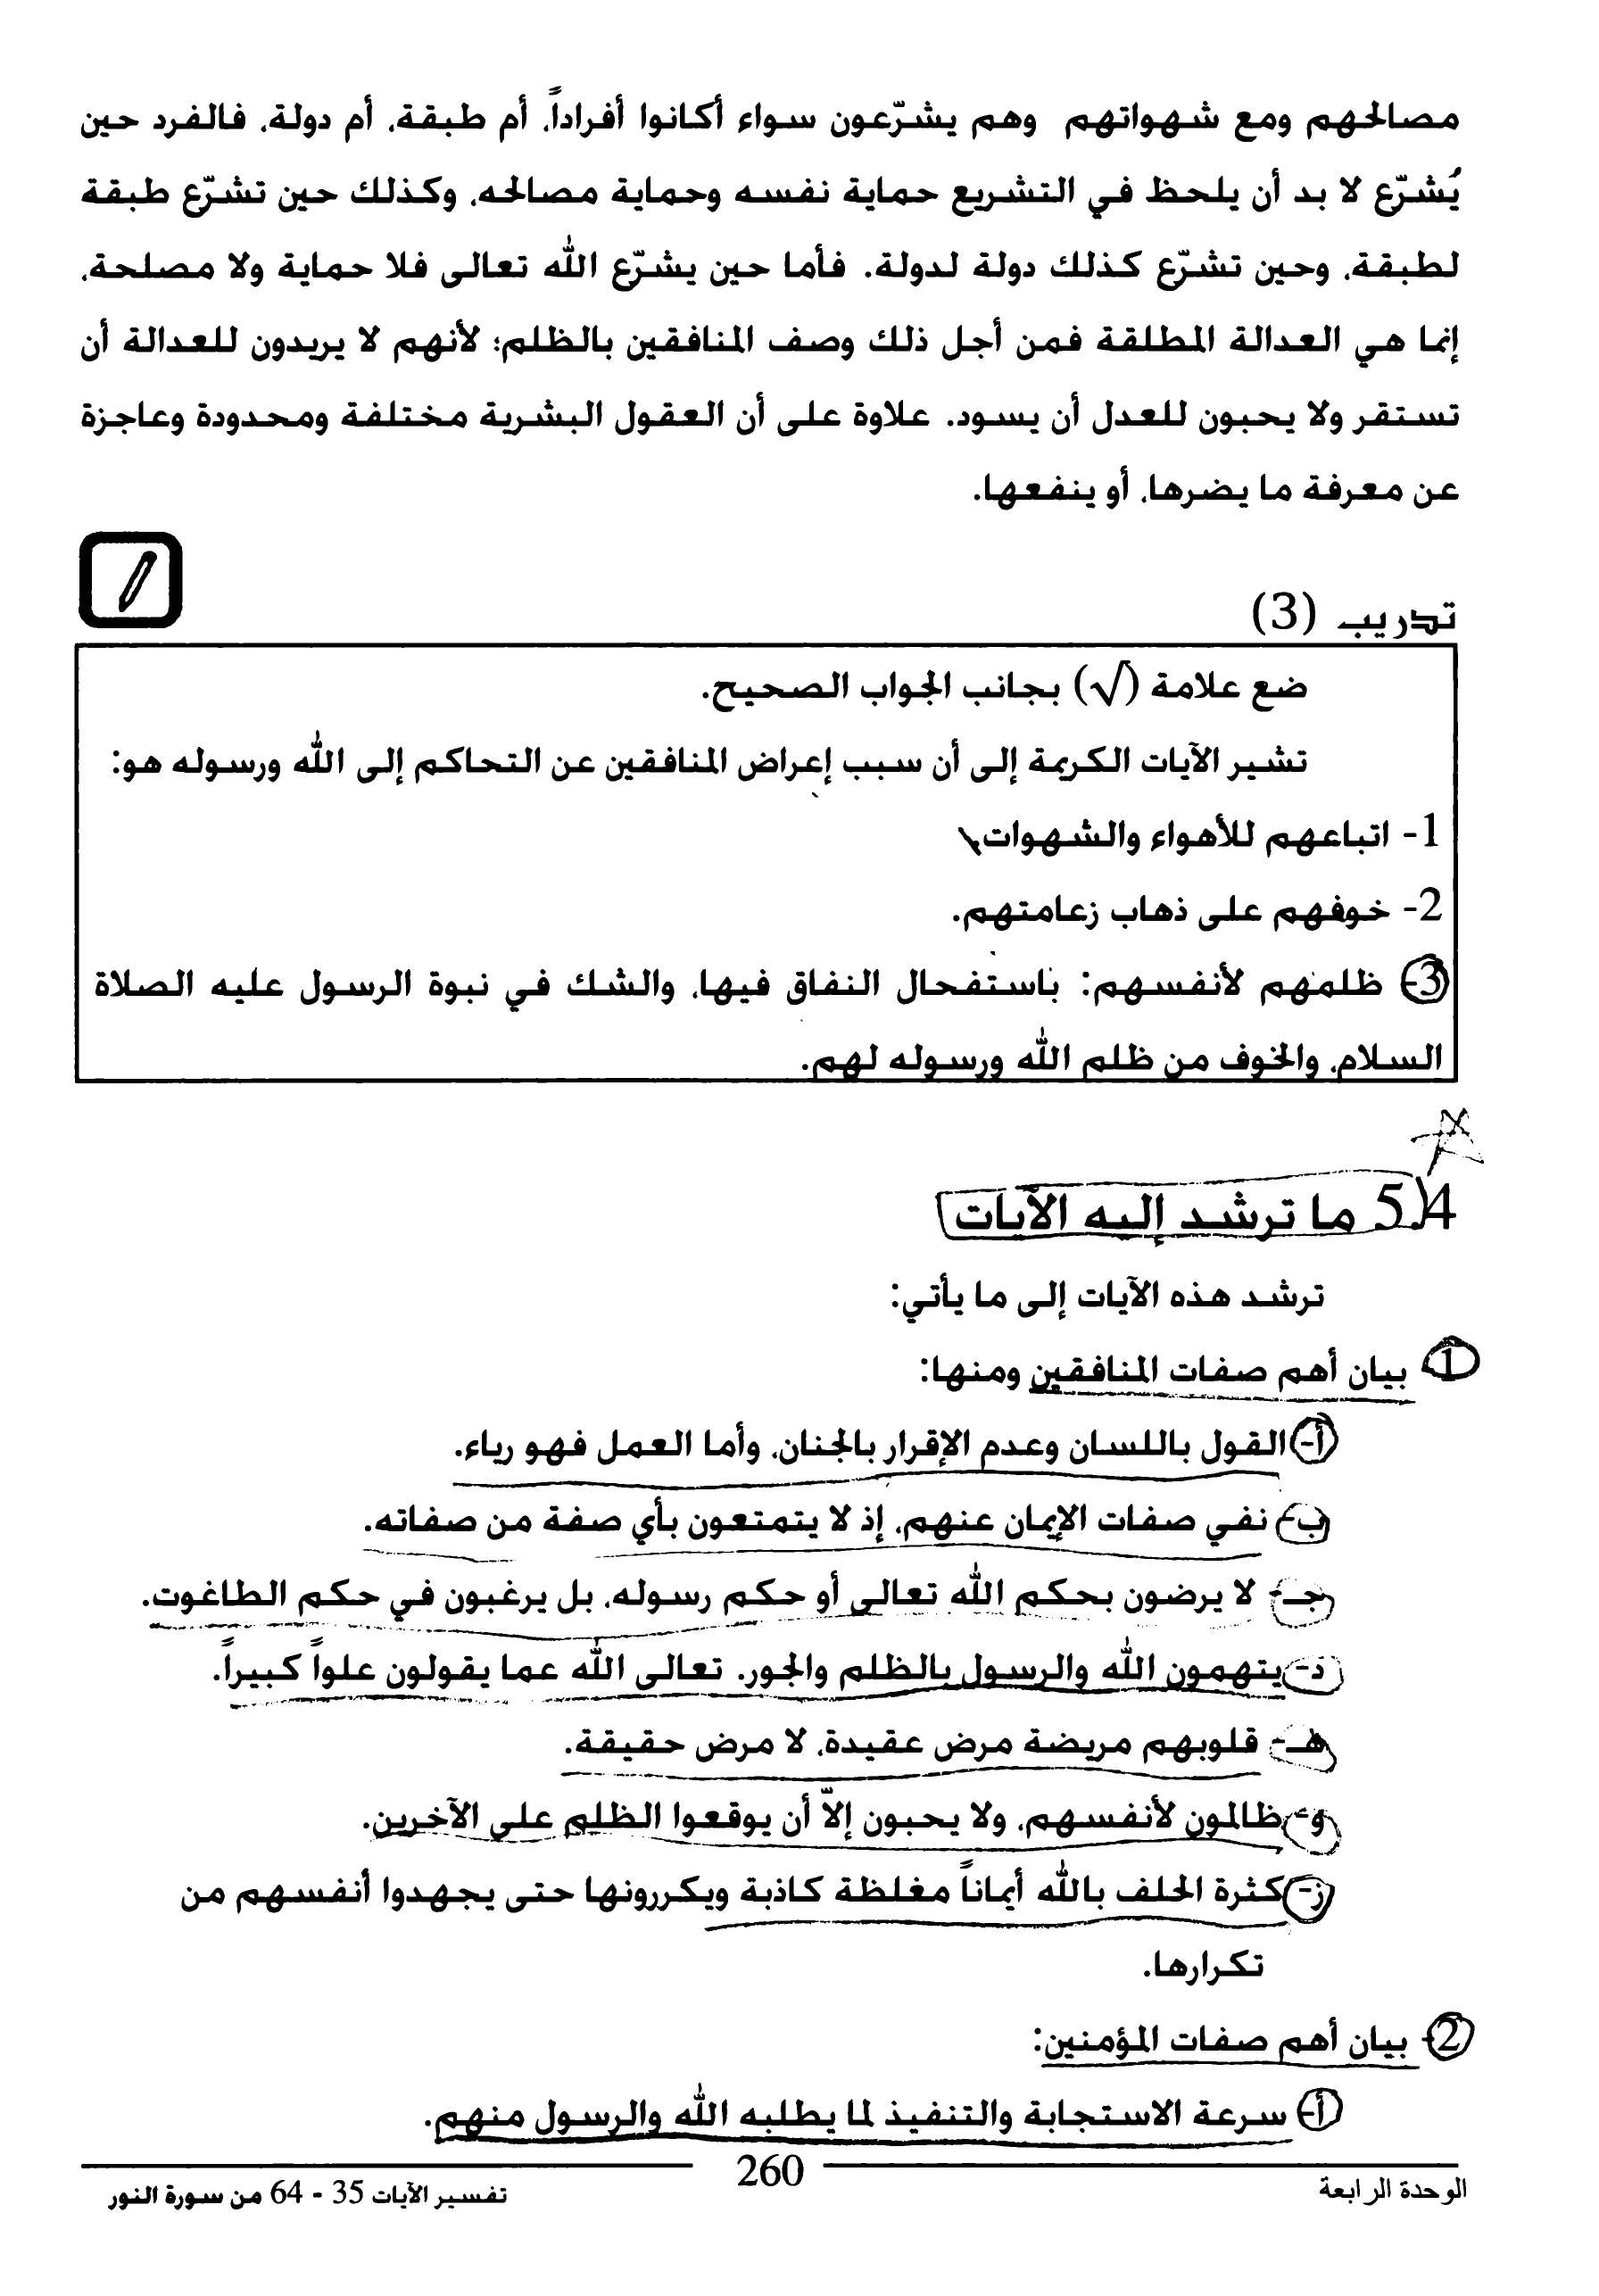 مصالحهم ومع شهواتهم وهم يشرّعون سواء أكانوا أفراداً، أم طبقة، أم دولة، فالفرد حين
يُشرّع لا بد أن يلحظ في التشريع حماية نفسه وحماية مصالحه، وكذلك حين تشرّع طبقة
لطبقة، وحين تشرّع كذلك دولة لدولة. فأما حين يشرّع الله تعالى فلا حماية ولا مصلحة،
إنما هي العدالة المطلقة فمن أجل ذلك وصف المنافقين بالظلم؛ لأنهم لا يريدون للعدالة أن
تستقر ولا يحبون للعدل أن يسود. علاوة على أن العقول البشرية مختلفة ومحدودة وعاجزة
عن معرفة ما يضرها، أو ينفعها.
تدريب (3)
ضع علامة (√) بجانب الجواب الصحيح.
تشير الآيات الكريمة إلى أن سبب إعراض المنافقين عن التحاكم إلى الله ورسوله هو:
1- اتباعهم للأهواء والشهوات
2- خوفهم على ذهاب زعامتهم.
3- ظلمهم لأنفسهم: باستفحال النفاق فيها، والشك في نبوة الرسول عليه الصلاة
السلام، والخوف من ظلم الله ورسوله لهم.
5.4 ما ترشد إليه الآيات
ترشد هذه الآيات إلى ما يأتي:
1- بيان أهم صفات المنافقين ومنها:
أ- القول باللسان وعدم الإقرار بالجنان، وأما العمل فهو رياء.
ب- نفي صفات الإيمان عنهم، إذ لا يتمتعون بأي صفة من صفاته.
جـ- لا يرضون بحكم الله تعالى أو حكم رسوله، بل يرغبون في حكم الطاغوت.
د- يتهمون الله والرسول بالظلم والجور. تعالى الله عما يقولون علواً كبيراً.
هـ- قلوبهم مريضة مرض عقيدة، لا مرض حقيقة.
و- ظالمون لأنفسهم، ولا يحبون إلاّ أن يوقعوا الظلم على الآخرين.
ز- كثرة الحلف بالله أيماناً مغلظة كاذبة ويكررونها حتى يجهدوا أنفسهم من
تكرارها.
2- بيان أهم صفات المؤمنين:
أ- سرعة الاستجابة والتنفيذ لما يطلبه الله والرسول منهم.
الوحدة الرابعة
260
تفسير الآيات 35 - 64 من سورة النور